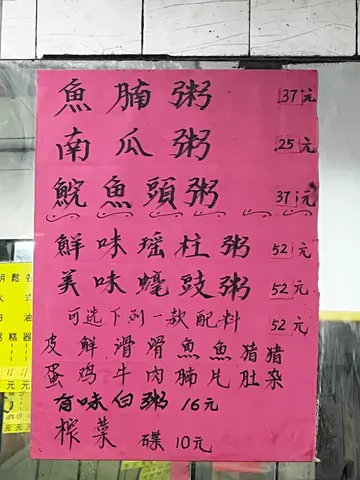 魚腩粥 37元
南瓜粥 25元
鯇魚頭粥 37元
鮮味瑤柱粥 52元
美味蠔豉粥 52元
可选下列一款配料 52元
皮鮮滑滑魚魚猪猪
蛋鸡牛肉腩片肚杂
有味白粥 16元
榨菜 碟 10元